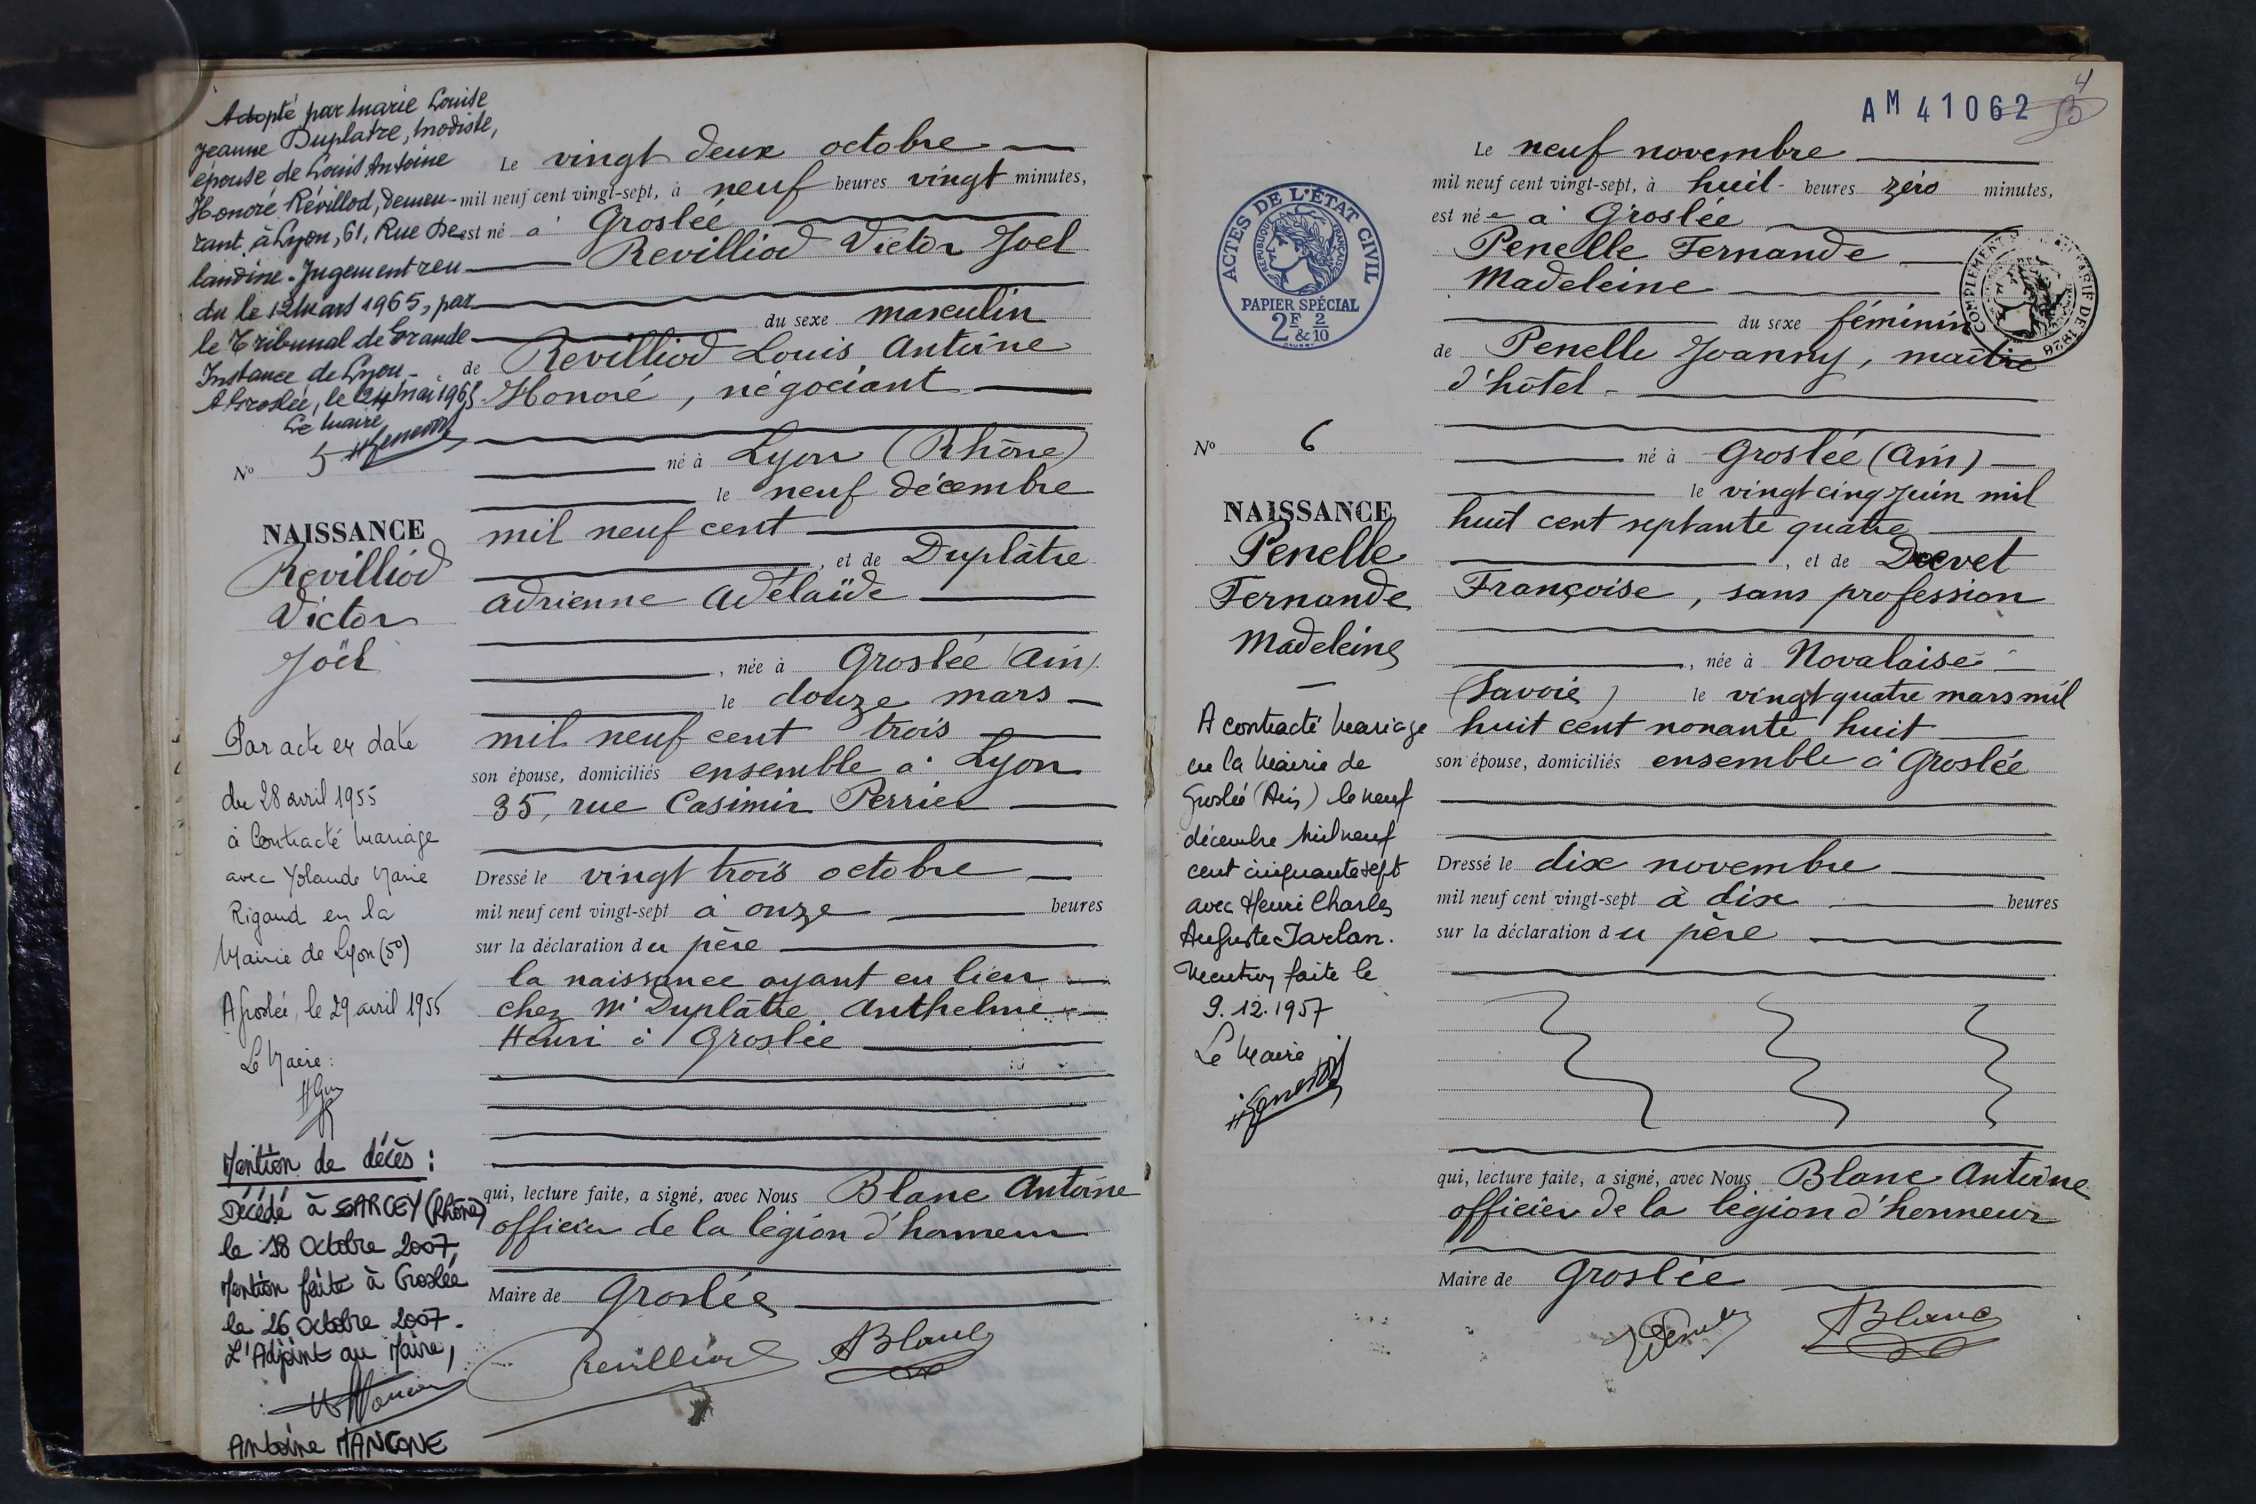 Adopté par Marie Louise
Jeanne Duplatre, modiste,
epouse de Louis Antoine
Honoré Révillod, demeu-
rant à Lyon, 61, Rue De
landine. Jugement ren
du le 12 Mars 1965, par
le Tribunal de Grande
Instance de Lyon -
A Groslée, le 24 Mai 1965
Le Maire
N° 5
NAISSANCE
Revilliod
Victor
Joël
Par acte en date
du 28 avril 1955
à Contracté Mariage
avec Yolande Marie
Rigaud en la
Mairie de Lyon (5°)
A Groslée, le 29 avril 1955
Le Maire :
Mention de décès :
Décédé à SARCEY (Rhône)
le 18 Octobre 2007,
Mention faite à Groslée
le 26 Octobre 2007.
L'Adjoint au Maire,
Antoine MANCONE
Le vingt deux octobre
mil neuf cent vingt-sept, à neuf heures vingt minutes,
est né à Groslée
Revilliod Victor Joel
du sexe masculin
de Revilliod Louis Antoine
Honoré, négociant
né à Lyon (Rhône)
le neuf décembre
mil neuf cent
, et de Duplâtre
Adrienne Adélaïde
, née à Groslée (Ain)
le douze mars
mil neuf cent trois
son épouse, domiciliés ensemble à Lyon
35, rue Casimir Perrier
Dressé le vingt trois octobre
mil neuf cent vingt-sept à onze heures
sur la déclaration du père
la naissance ayant eu lieu
chez Mr Duplâtre Anthelme
Henri à Groslée
qui, lecture faite, a signé, avec Nous Blanc Antoine
officier de la légion d'honneur
Maire de Groslée
Revilliod ABlanc
AM 41062
4
ACTES DE L'ÉTAT CIVIL
RÉPUBLIQUE FRANÇAISE
PAPIER SPÉCIAL
2F & 2/10
N° 6
NAISSANCE
Penelle
Fernande
Madeleine
A contracté Mariage
en la Mairie de
Groslée (Ain) le neuf
décembre Mil neuf
cent cinquante sept
avec Henri Charles
Auguste Tarlan.
Mention faite le
9.12.1957
Le Maire
Le neuf novembre
mil neuf cent vingt-sept, à huit heures zéro minutes,
est née à Groslée
Penelle Fernande
Madeleine
du sexe féminin
de Penelle Joanny, maître
d'hôtel
né à Groslée (Ain)
le vingt cinq Juin mil
huit cent septante quatre
, et de
Françoise, sans profession
, née à Novalaise
(Savoie) le vingt quatre mars mil
huit cent nonante huit
son épouse, domiciliés ensemble à Groslée
Dressé le dix novembre
mil neuf cent vingt-sept à dix heures
sur la déclaration du père
qui, lecture faite, a signé, avec Nous Blanc Antoine
officier de la légion d'honneur
Maire de Groslée
ABlanc